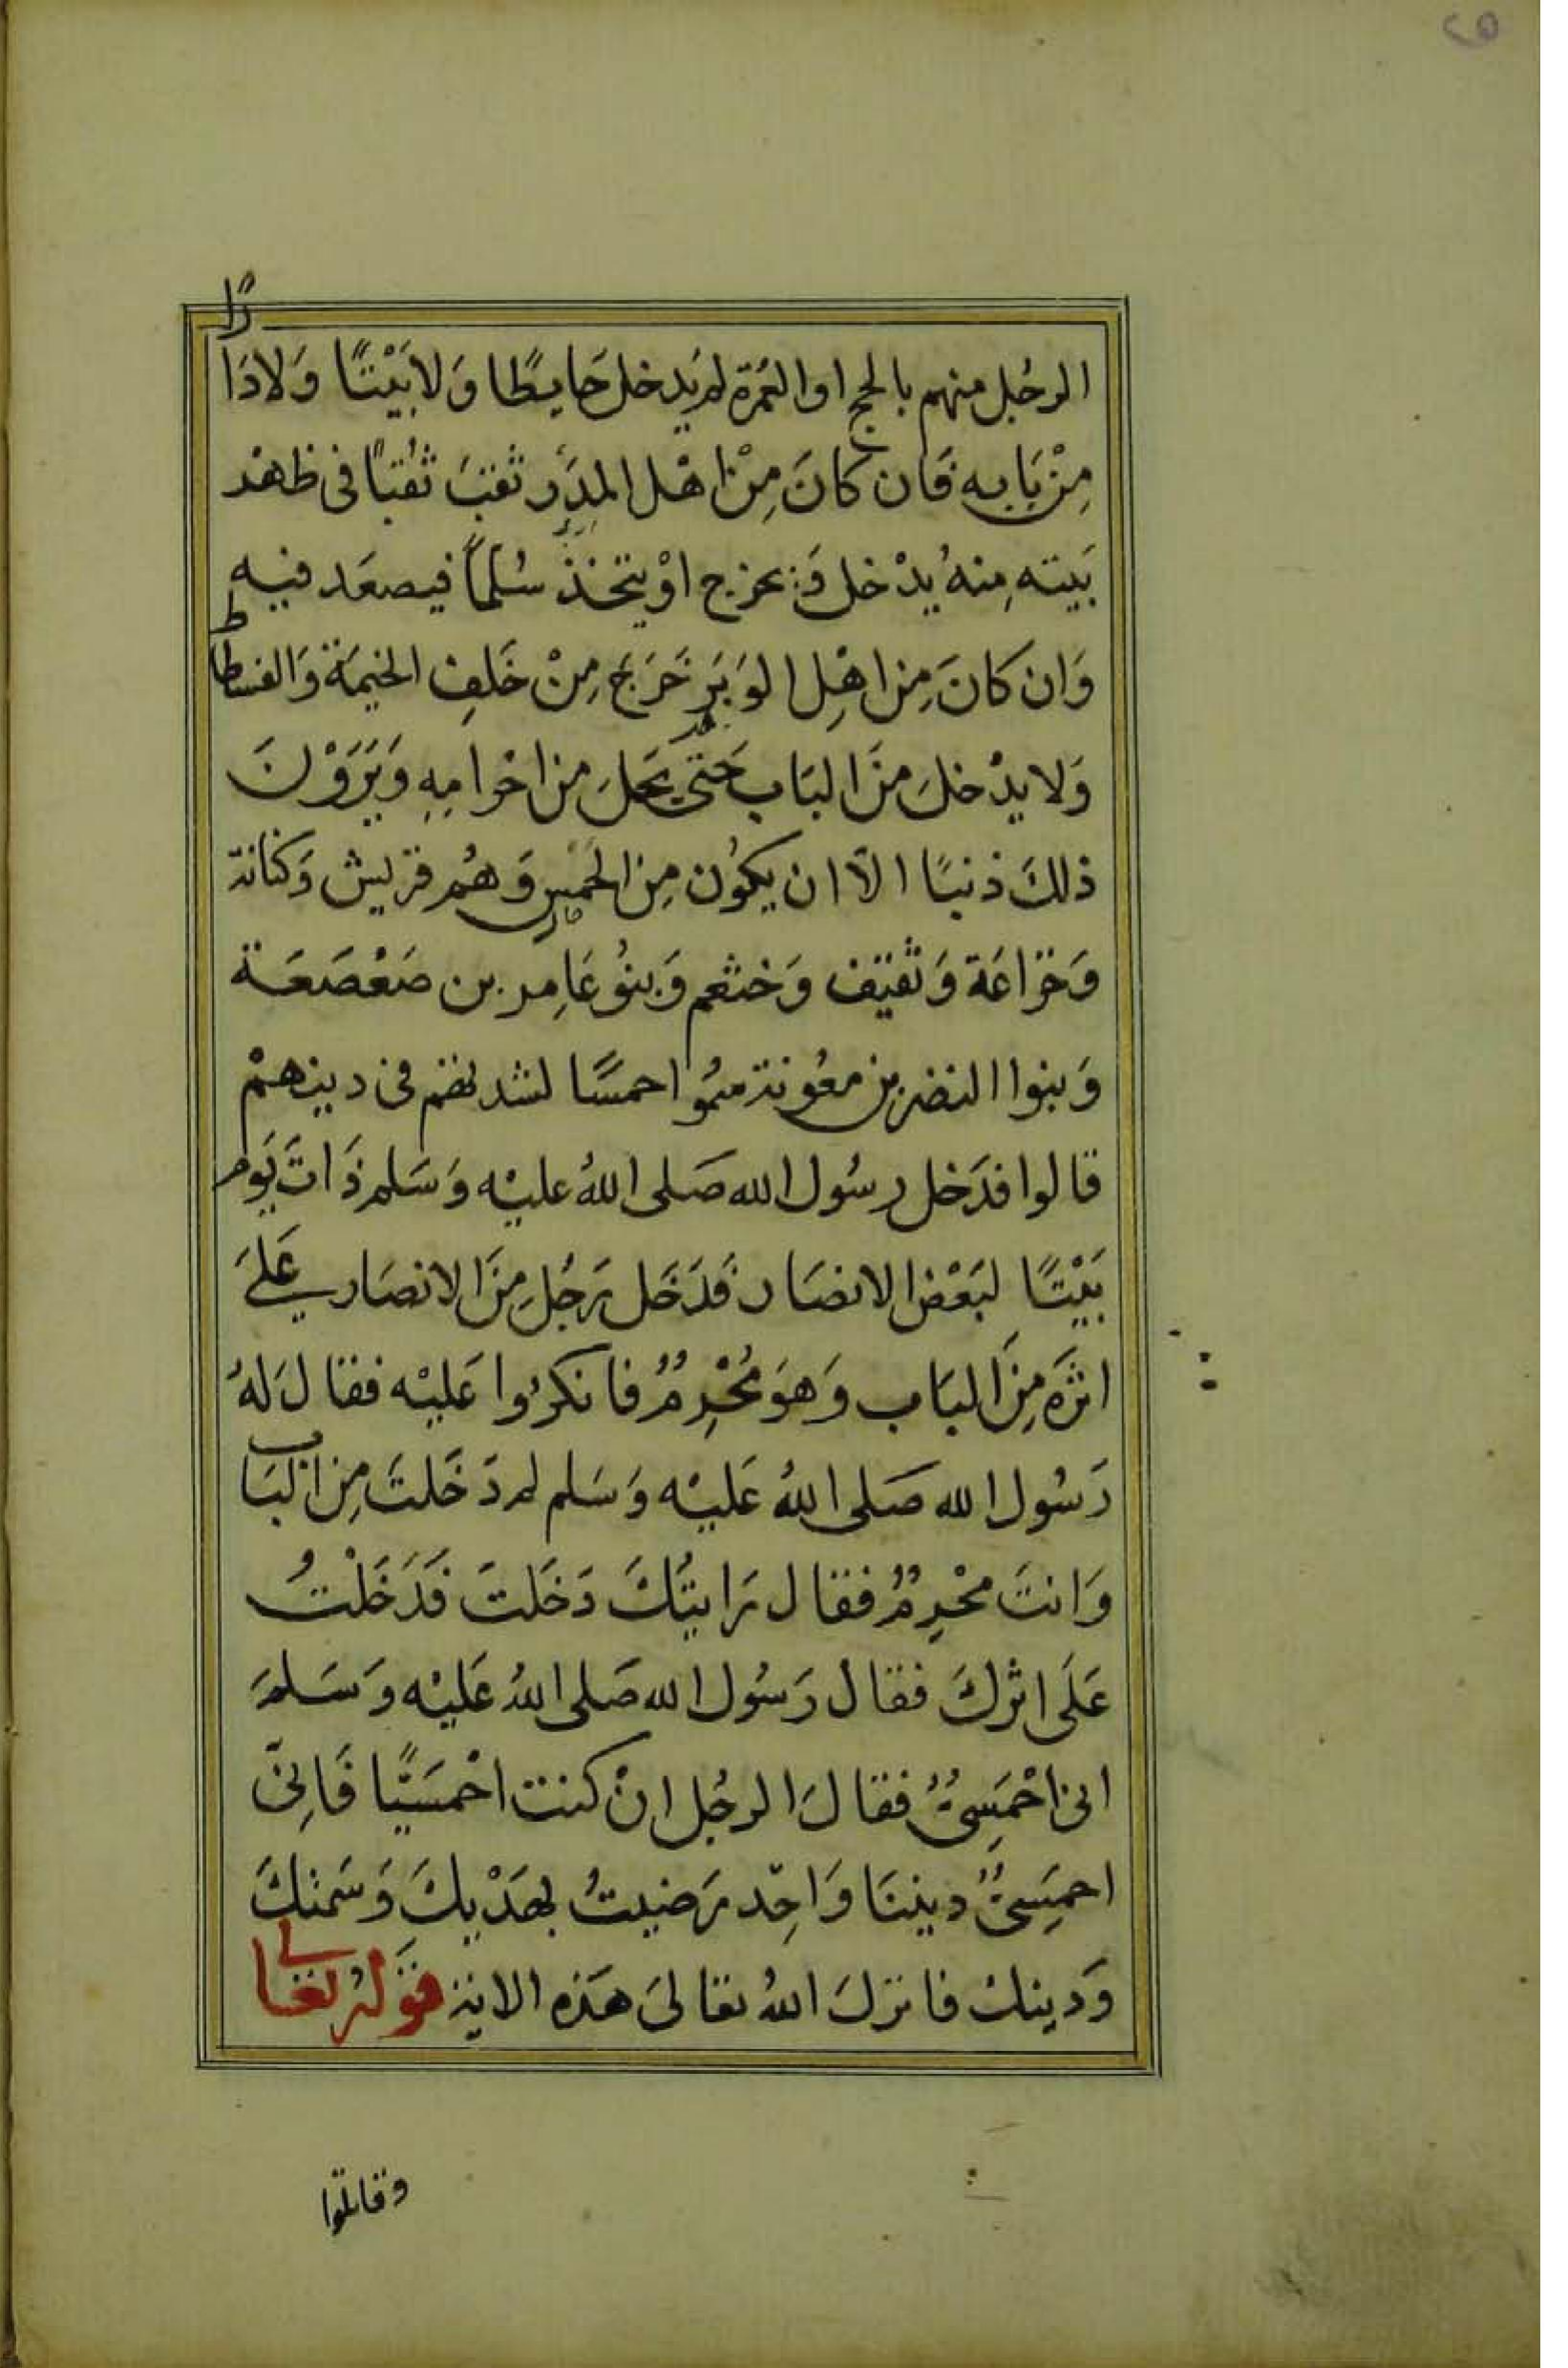 ٢٥
الرجُل منهم بالحج او العُمرَة لم يَدخل حَايطًا وَلا بَيْتًا وَلا دَارًا
مِنْ بَابِه فَان كانَ مِنْ اهْل المدَر ثقبَ ثقبًا فى ظهْر
بَيته مِنهُ يدْخل وَيخرج اوْ يتخذ سُلمًا فيصعَد فيه
وَان كانَ مِن اهْلِ الوَبَرِ خَرَجَ مِنْ خَلفِ الخيمَة وَالفسطاط
وَلا يدْخلَ منَ البَاب حَتى يَحلَ من احْرامِهِ وَيَرَوْنَ
ذلكَ ذنبًا الاّ ان يكوُن مِن الحمسِ وَهُم قريش وَكنانة
وَخزاعَة وَثقيف وَخثعم وَبنوُ عَامِر بن صَعْصَعَة
وَبنوا النضر بن معوُنة سمُّوا حمسًا لشدتهم فى دينهمْ
قالوا فدَخل رسُول الله صَلى اللهُ عليْه وَسَلم ذَاتَ يَوم
بَيْتًا لبَعْض الانصَار فَدَخَل رَجُلِ مِنَ الانصَارِ عَلىَ
اثرَه مِنَ البَاب وَهوَ مُحْرِمٌ فانكرُوا عَليْه فقال لَهُ
رَسُول الله صَلى اللهُ عَليْه وَسَلم لم دَخَلتَ مِن البَاب
وَانتَ محْرِمٌ فقال رَايتُكَ دَخَلتَ فَدَخَلْتُ
عَلَى اثركَ فقال رَسُول الله صَلى اللهُ عَليْه وَسَلمَ
انى احْمَسِىٌّ فقالَ الرجُل انْ كنت احْمَسِيًّا فَاِنىّ
احمَسِىٌّ ديننَا وَاحِد رَضيتُ بهَدْيِكَ وَسَمتكَ
وَدِينكْ فانزلَ اللهُ تعَالىَ هَذه الاية قوَلهُ تعَالى
وقاتلوا